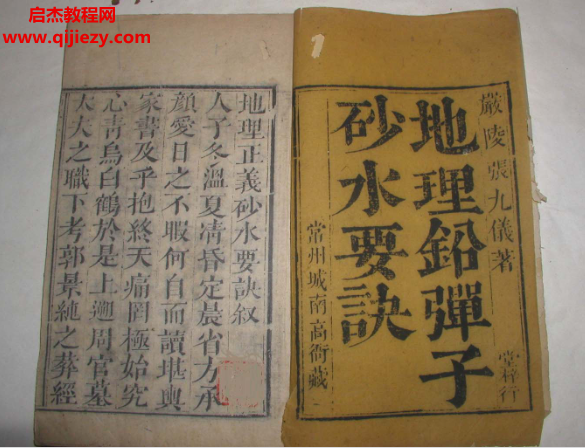 启杰教程网
www.qijiezy.com
1
嚴陵張九儀著
地理鉛彈子
砂水要訣
常州城南高衙藏
堂梓行
地理正義砂水要訣叙
人子冬溫夏凊昏定晨省方承
顔愛日之不暇何自而讀堪輿
家書及乎抱終天痛罔極始究
心靑烏白鶴於是上遡周官墓
大夫之職下考郭景純之葬經